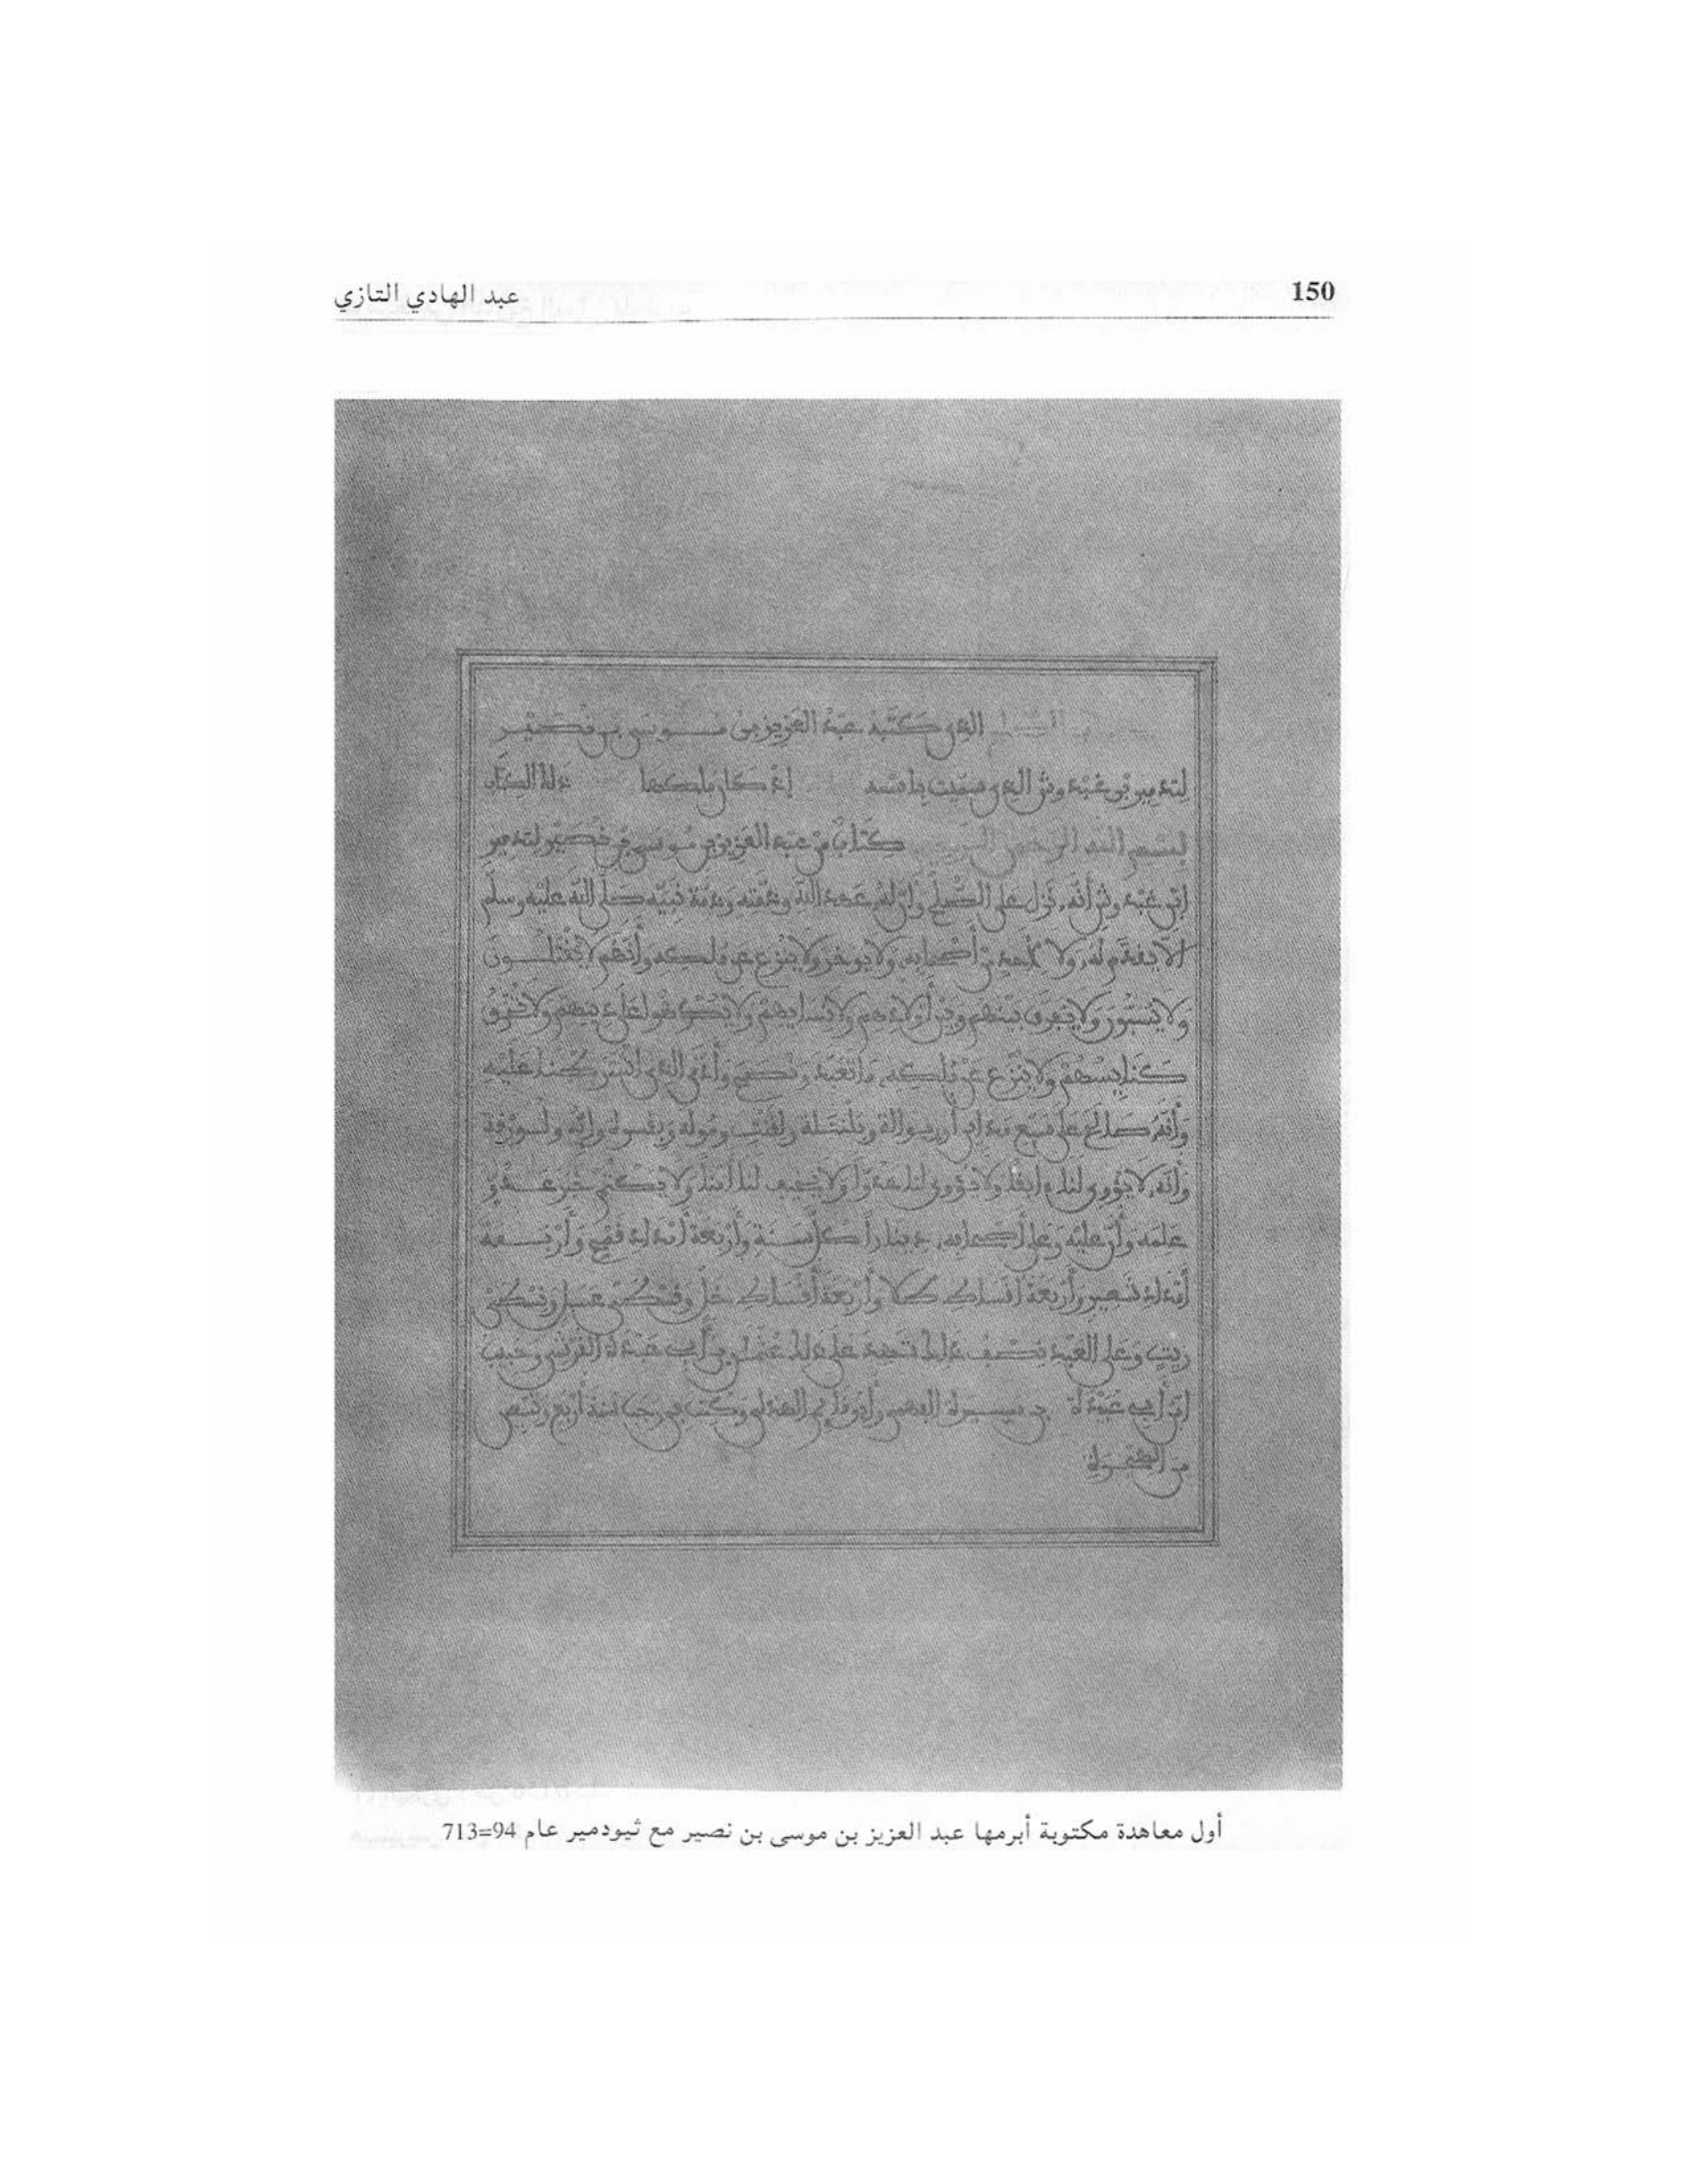 150
عبد الهادي التازي
الذي كتبه عبد العزيز بن موسى بن نصير
لتدمير بن غبدوش الذي سميت باسمه إذ كان ملكها
بسم الله الرحمن الرحيم كتاب من عبد العزيز بن موسى بن نصير لتدمير
ابن غبدوش أنه نزل على الصلح وأن له عهد الله وذمته وذمة نبيه صلى الله عليه وسلم
ألا يقدم له ولا لأحد من أصحابه ولا يوخر ولا ينزع عن ملكه وأنهم لا يقتلون
ولا يسبون ولا يفرق بينهم وبين أولادهم ولا نسايهم ولا يكرهوا على دينهم ولا تحرق
كنايسهم ولا ينزع عن ملكه ما تعبد ونصح وأدى الذي اشترطنا عليه
وأنه صالح على سبع مداين أوريوالة وبلنتلة ولقنت ومولة وبقسره وإيه ولورقة
وأنه لا يؤوي لنا ابقا ولا يؤوي لنا عدوا ولا يخيف لنا آمنا ولا يكتم خبر عدو
علمه وأن عليه وعلى أصحابه دينارا كل سنة وأربعة أمداد قمح وأربعة
أمداد شعير وأربعة أقساط طلا وأربعة أقساط خل وقسطي عسل وقسطي
زيت وعلى العبد نصف ذلك شهد على ذلك عثمن بن أبي عبدة القرشي وحبيب
ابن أبي عبيدة بن ميسرة الفهمي وأبو قايم الهذلي وكتب في رجب سنة أربع وتسعين
من الهجرة
أول معاهدة مكتوبة أبرمها عبد العزيز بن موسى بن نصير مع ثيودمير عام 94=713